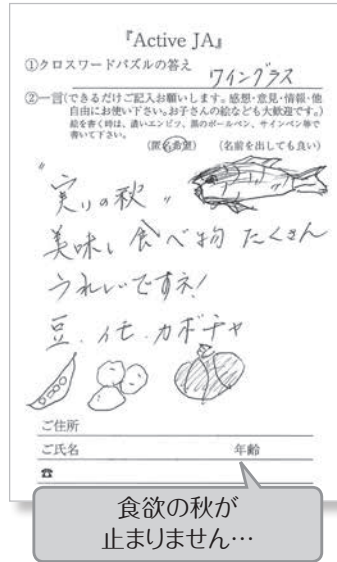 『Active JA』
①クロスワードパズルの答え
ワイングラス
②一言(できるだけご記入お願いします。感想・意見・情報・他
自由にお使い下さい。お子さんの絵なども大歓迎です。)
絵を書く時は、濃いエンピツ、黒のボールペン、サインペン等で
書いて下さい。
(匿名希望) (名前を出しても良い)
"実りの秋"
美味しい食べ物 たくさん
うれしいですネ!
豆、イモ、カボチャ
ご住所
ご氏名 年齢
☎
食欲の秋が
止まりません…